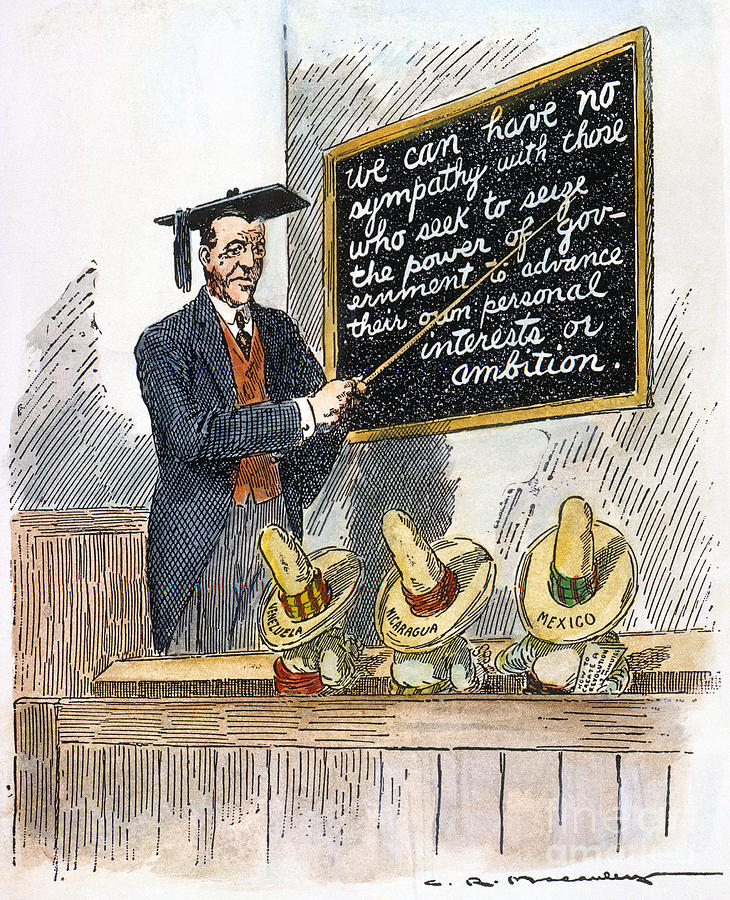 we can have no
sympathy with those
who seek to seize
the power of gov-
ernment to advance
their own personal
interests or
ambition.
VENEZUELA
NICARAGUA
MEXICO
HOW TO
CREATE A
REVOLUTION
C. R. Macauley
fine art
america